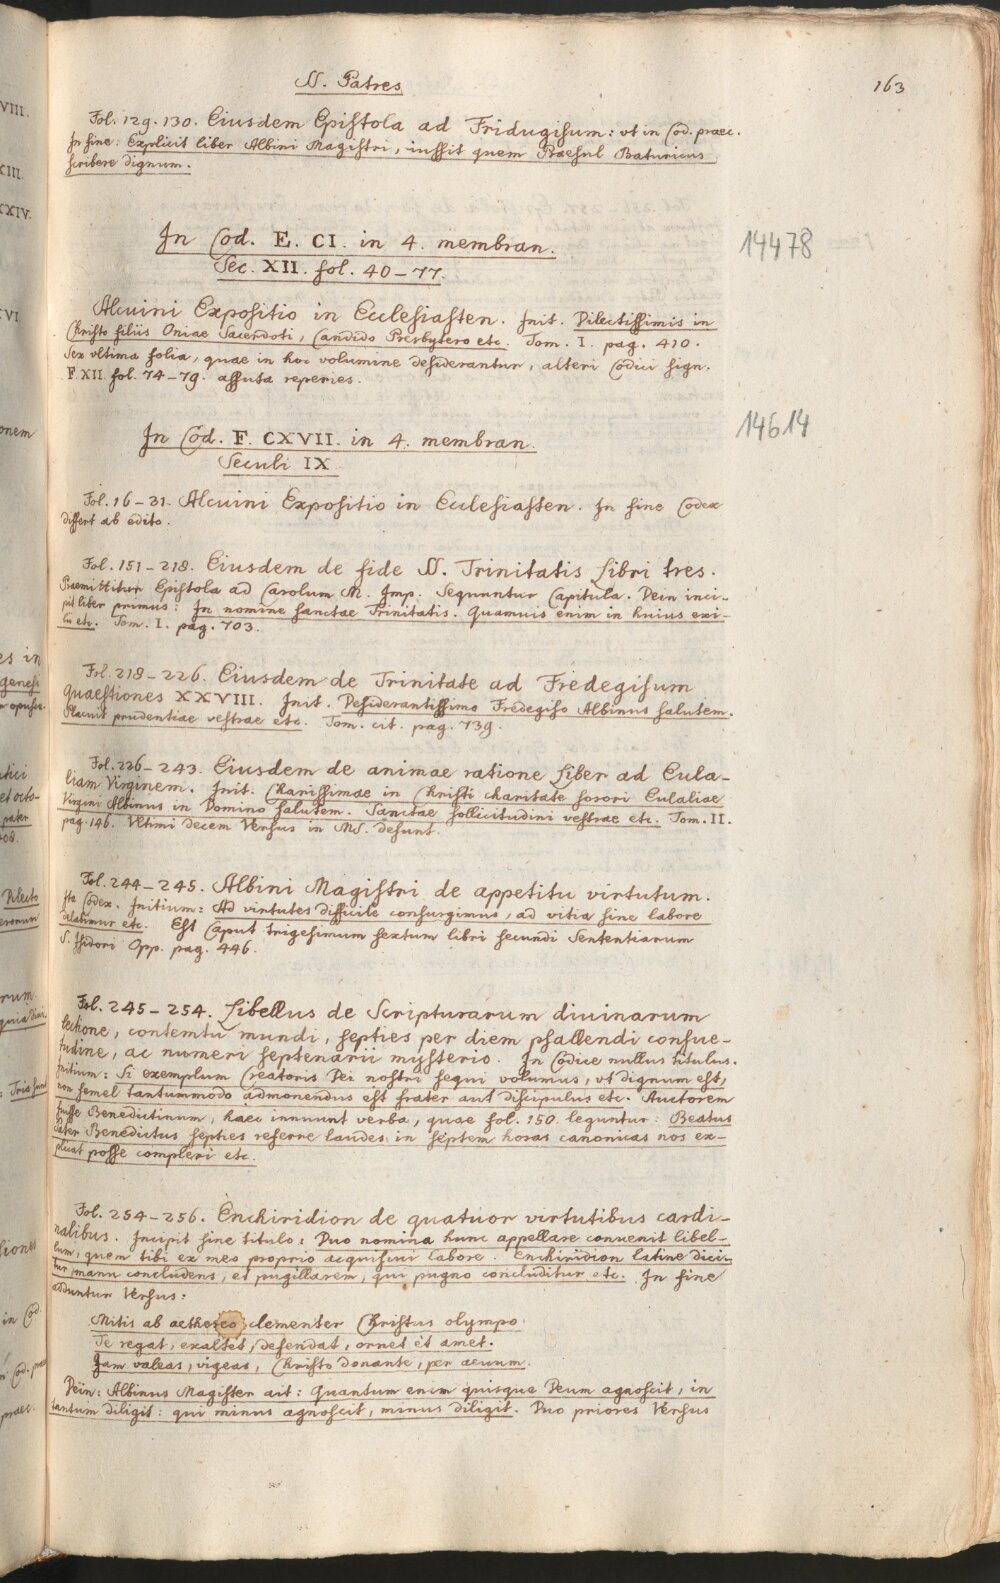 SS. Patres
163
Fol. 129. 130. Eiusdem Epistola ad Fridugisum: vt in Cod. praec.
In fine: Explicit liber Albini Magistri, iussit quem Praesul Baturicus
scribere dignum.
In Cod. E. CI. in 4. membran.
14478
Sec. XII. fol. 40–77.
Alcuini Expositio in Ecclesiasten. Init. Dilectissimis in
Christo filiis Oniae Sacerdoti, Candido Presbytero etc. Tom. I. pag. 410.
Sex vltima folia, quae in hoc volumine desiderantur, alteri Codici sign.
F XII. fol. 74–79. assuta reperies.
In Cod. F. CXVII. in 4. membran.
14614
Seculi IX.
Fol. 16–31. Alcuini Expositio in Ecclesiasten. In fine Codex
differt ab edito.
Fol. 151–218. Eiusdem de fide SS. Trinitatis Libri tres.
Praemittitur Epistola ad Carolum M. Imp. Sequuntur Capitula. Dein inci-
pit liber primus: In nomine sanctae Trinitatis. Quamuis enim in huius exi-
lii etc. Tom. I. pag. 703.
Fol. 218–226. Eiusdem de Trinitate ad Fredegisum
Quaestiones XXVIII. Init. Desiderantissimo Fredegiso Albinus salutem.
Placuit prudentiae vestrae etc. Tom. cit. pag. 739.
Fol. 226–243. Eiusdem de animae ratione Liber ad Eula-
liam Virginem. Init. Charissimae in Christi charitate sorori Eulaliae
Virgini Albinus in Domino salutem. Sanctae sollicitudini vestrae etc. Tom. II.
pag. 146. Vltimi decem Versus in MS. desunt.
Fol. 244–245. Albini Magistri de appetitu virtutum.
Ita Codex. Initium: Ad virtutes difficile consurgimus, ad vitia sine labore
delabimur etc. Est Caput trigesimum sextum libri secundi Sententiarum
S. Isidori Opp. pag. 446.
Fol. 245–254. Libellus de Scripturarum diuinarum
lectione, contemtu mundi, septies per diem psallendi consue-
tudine, ac numeri septenarii mysterio. In Codice nullus titulus.
Initium: Si exemplum Creatoris Dei nostri sequi volumus, vt dignum est,
non semel tantummodo admonendus est frater aut discipulus etc. Auctorem
fuisse Benedictinum, haec innuunt verba, quae fol. 150. leguntur: Beatus
Pater Benedictus septies referre laudes in septem horas canonicas nos ex-
plicat posse compleri etc.
Fol. 254–256. Enchiridion de quatuor virtutibus cardi-
nalibus. Incipit sine titulo: Duo nomina hunc appellare conuenit libel-
lum, quem tibi ex meo proprio acquisiui labore. Enchiridion latine dici-
tur manu concludens, et pugillarem, qui pugno concluditur etc. In fine
adduntur Versus:
Mitis ab aethereo clementer Christus olympo
Te regat, exaltet, defendat, ornet et amet.
Jam valeas, vigeas, Christo donante, per aeuum.
Dein: Albinus Magister ait: Quantum enim quisque Deum agnoscit, in
tantum diligit: qui minus agnoscit, minus diligit. Duo priores Versus